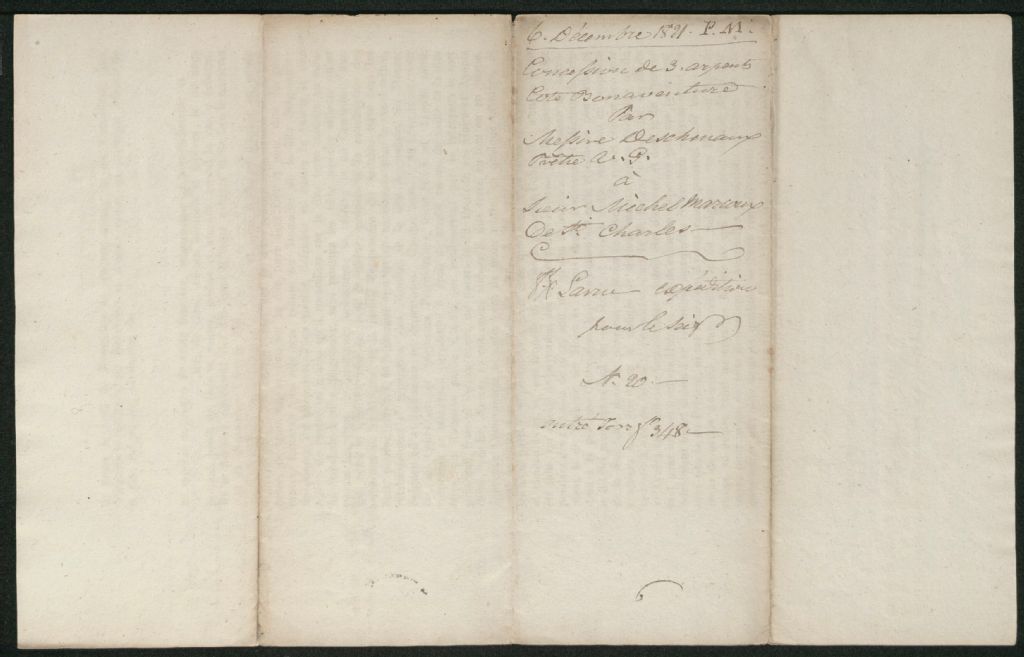 6. Décembre 1821. P. M.
Concession de 3. arpents
Cote Bonaventure
Par
Messire Deschenaux
Prêtre V. G.
à
Sieur Michel Marcoux
De St. Charles
Larue expédition
pour le Sr
N. 20.
entré Terr fo. 348